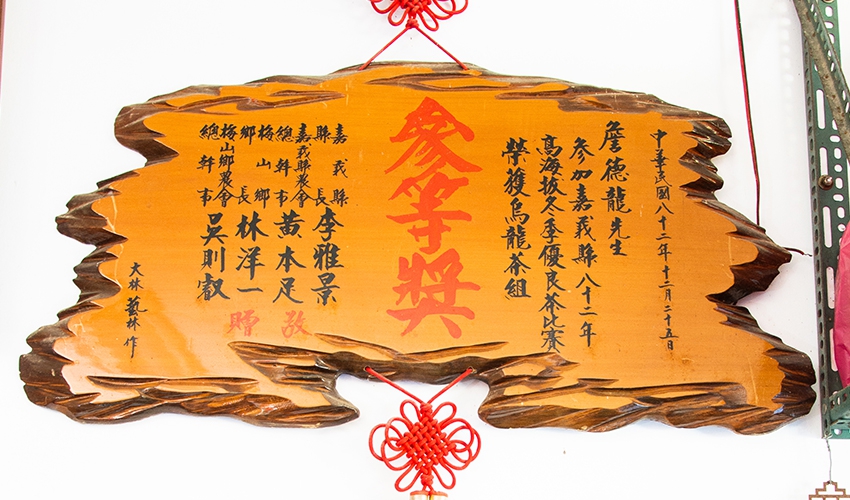 中華民國八十二年十二月二十五日
詹德龍先生
參加嘉義縣八十二年
高海拔冬季優良茶比賽
榮獲烏龍茶組
參等獎
嘉義縣縣長李雅景
嘉義縣農會總幹事黃本足
梅山鄉鄉長林洋一
梅山鄉農會總幹事吳則叡
敬贈
大林藝林作